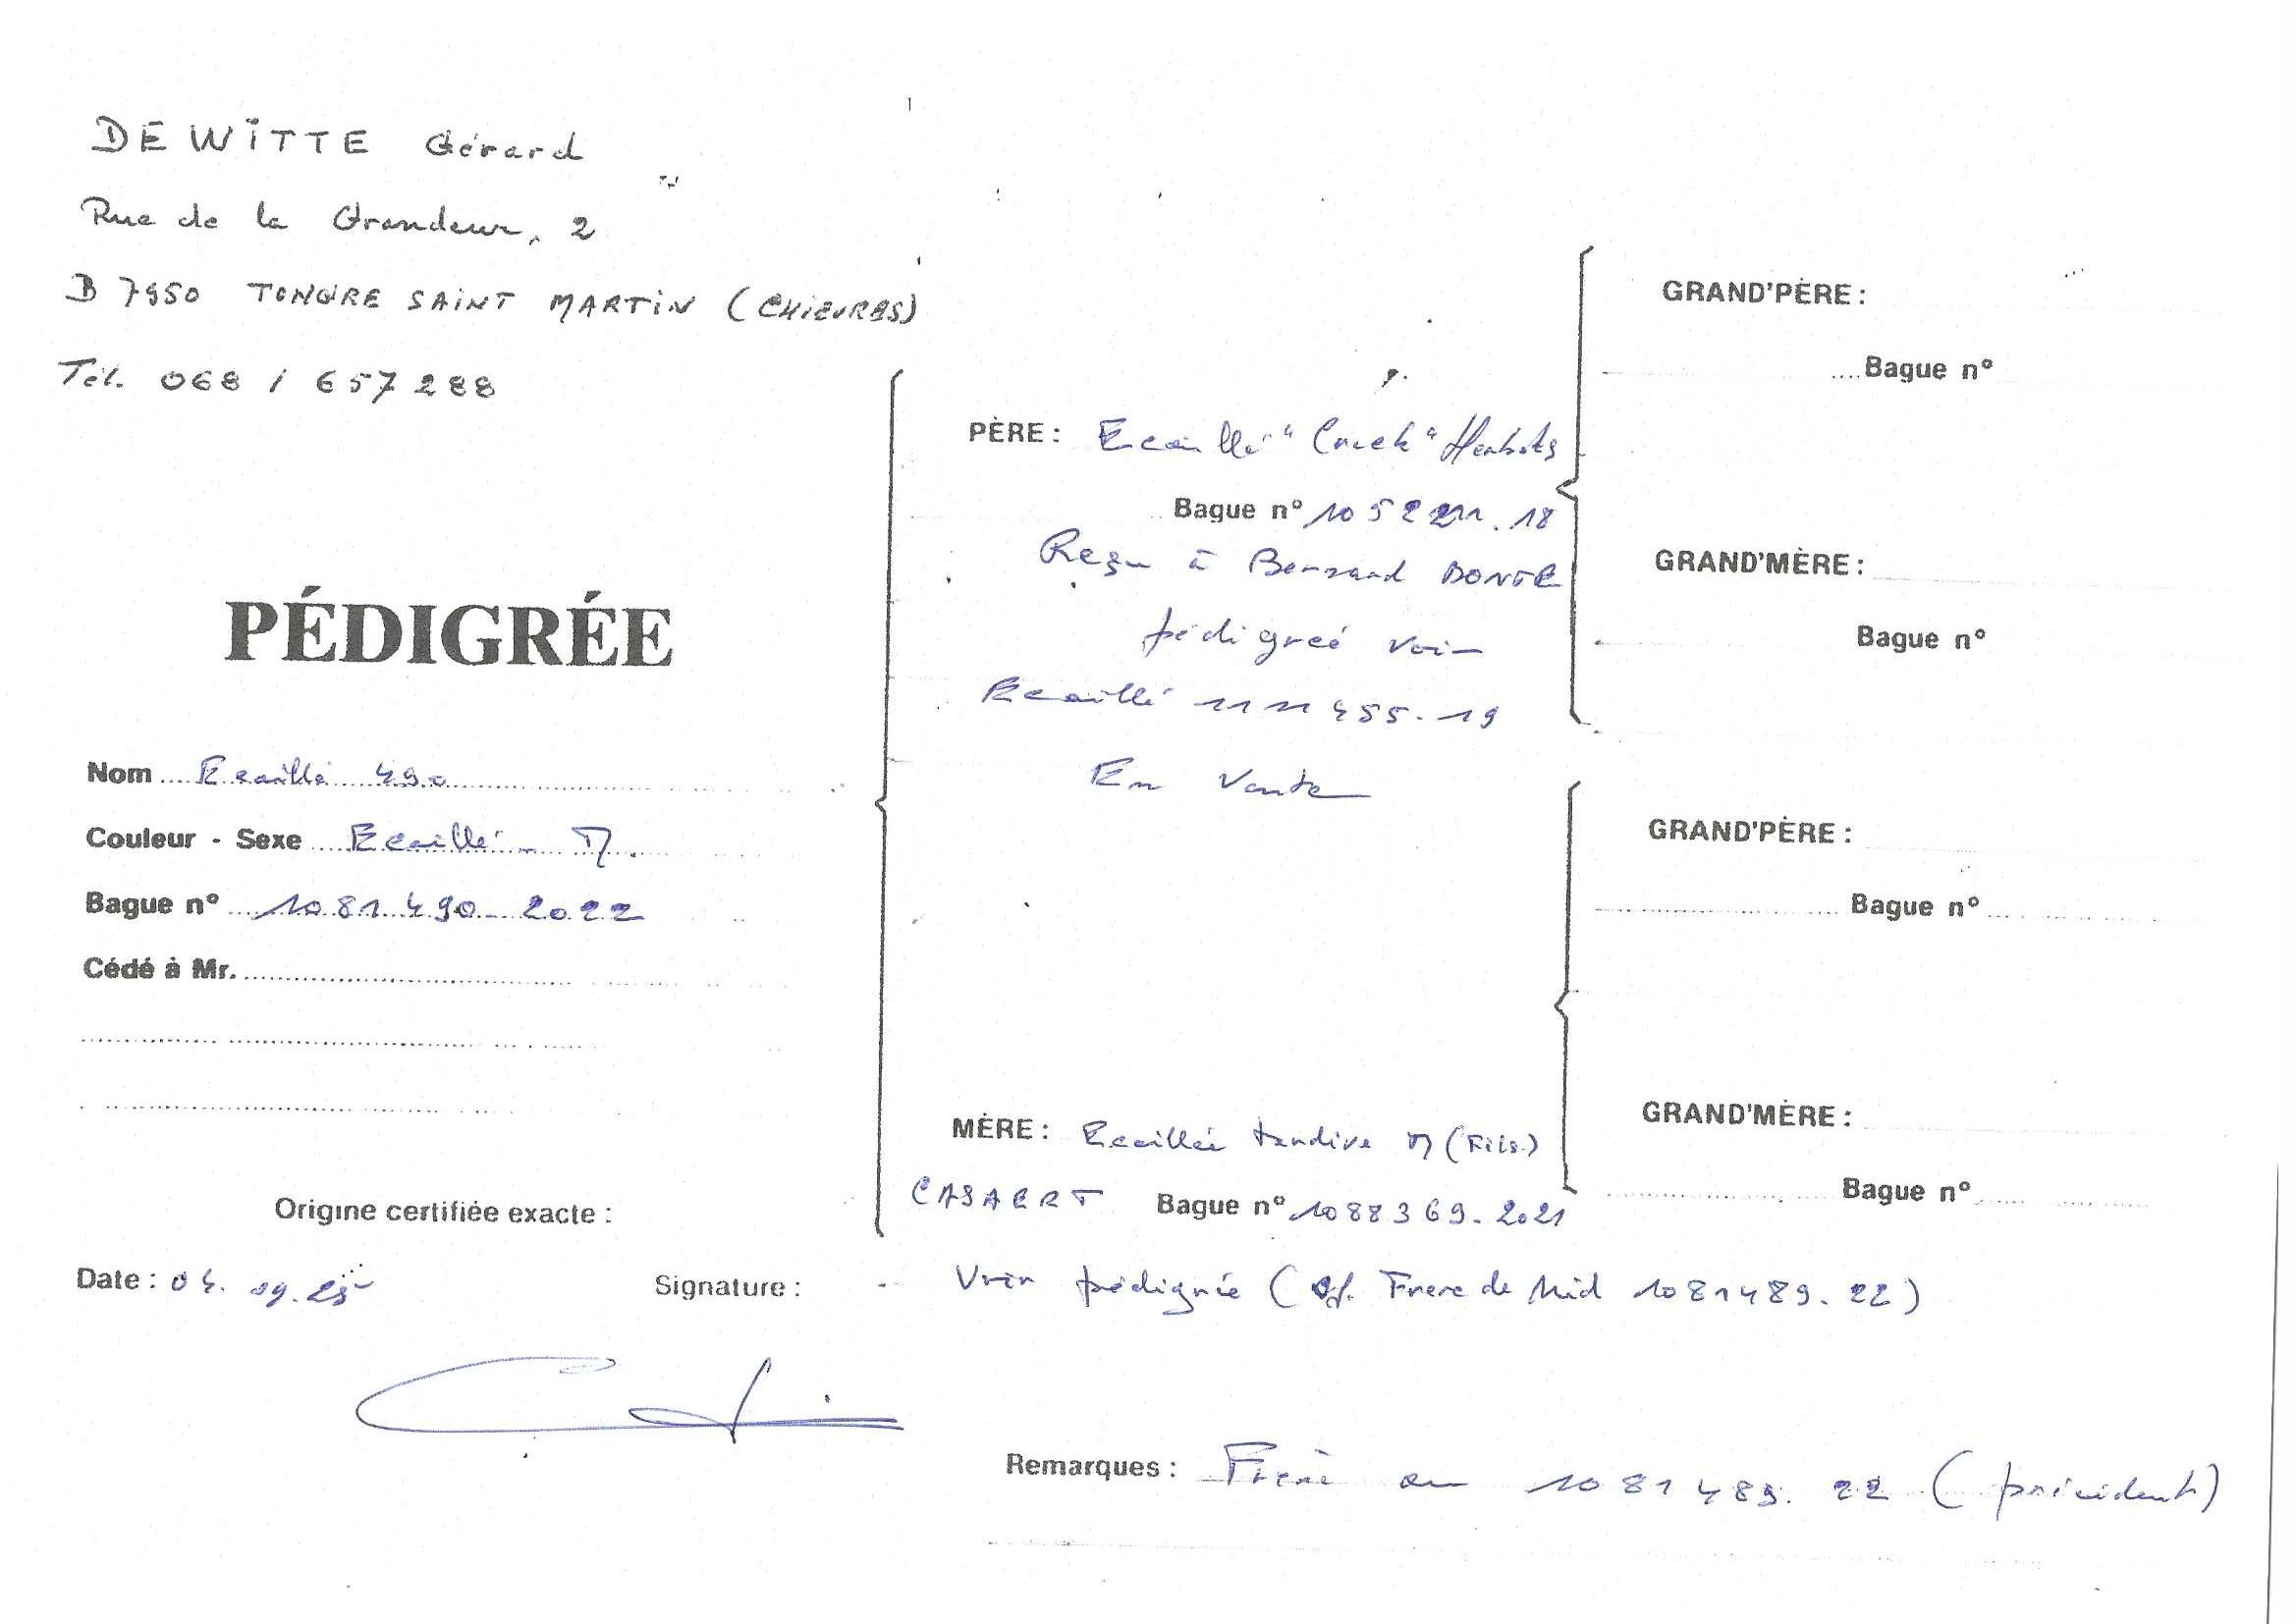 DEWITTE Gérard
Rue de la Grandeur, 2
B 7950 TONGRE SAINT MARTIN (CHIEVRES)
Tél. 068 / 657288
PÉDIGRÉE
Nom Ecaillé 490
Couleur - Sexe Ecaillé - M.
Bague n° 1081490-2022
Cédé à Mr.
Origine certifiée exacte :
Date : 04.09.25
Signature :
PÈRE : Ecaillé "Crack" Herbots
Bague n° 1052211.18
Reçu à Bernard DONTE
pédigreé voir
Ecaillé 1111455.19
En Vente
MÈRE : Ecaillée tardive M (Fils)
CASAERT Bague n° 1088369.2021
Voir pédigrée (cf. Frere de Nid 1081489.22)
GRAND'PÈRE :
Bague n°
GRAND'MÈRE :
Bague n°
GRAND'PÈRE :
Bague n°
GRAND'MÈRE :
Bague n°
Remarques : Frère au 1081489.22 (précédent)